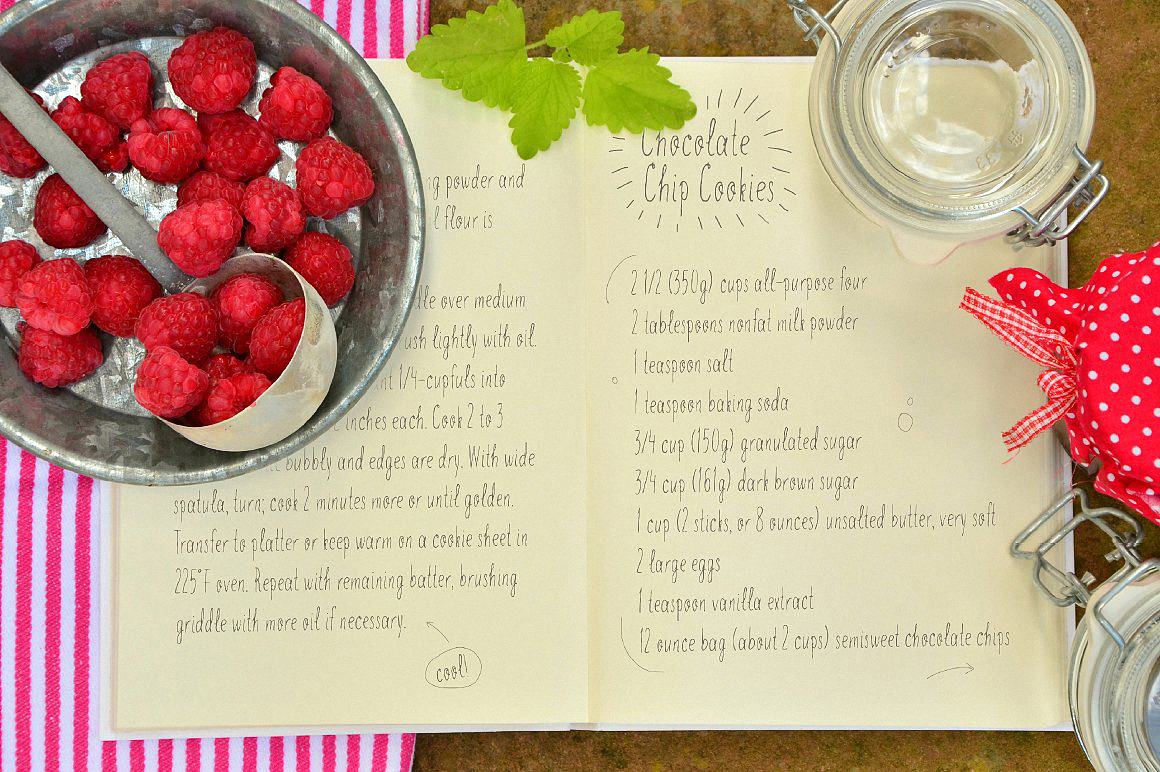 powder and
flour is
over medium
lightly with oil.
1/4-cupfuls into
inches each. Cook 2 to 3
bubbly and edges are dry. With wide
spatula, turn; cook 2 minutes more or until golden.
Transfer to platter or keep warm on a cookie sheet in
225°F oven. Repeat with remaining batter, brushing
griddle with more oil if necessary.
cool!
Chocolate
Chip Cookies
2 1/2 (350g) cups all-purpose four
2 tablespoons nonfat milk powder
1 teaspoon salt
1 teaspoon baking soda
3/4 cup (150g) granulated sugar
3/4 cup (161g) dark brown sugar
1 cup (2 sticks, or 8 ounces) unsalted butter, very soft
2 large eggs
1 teaspoon vanilla extract
12 ounce bag (about 2 cups) semisweet chocolate chips